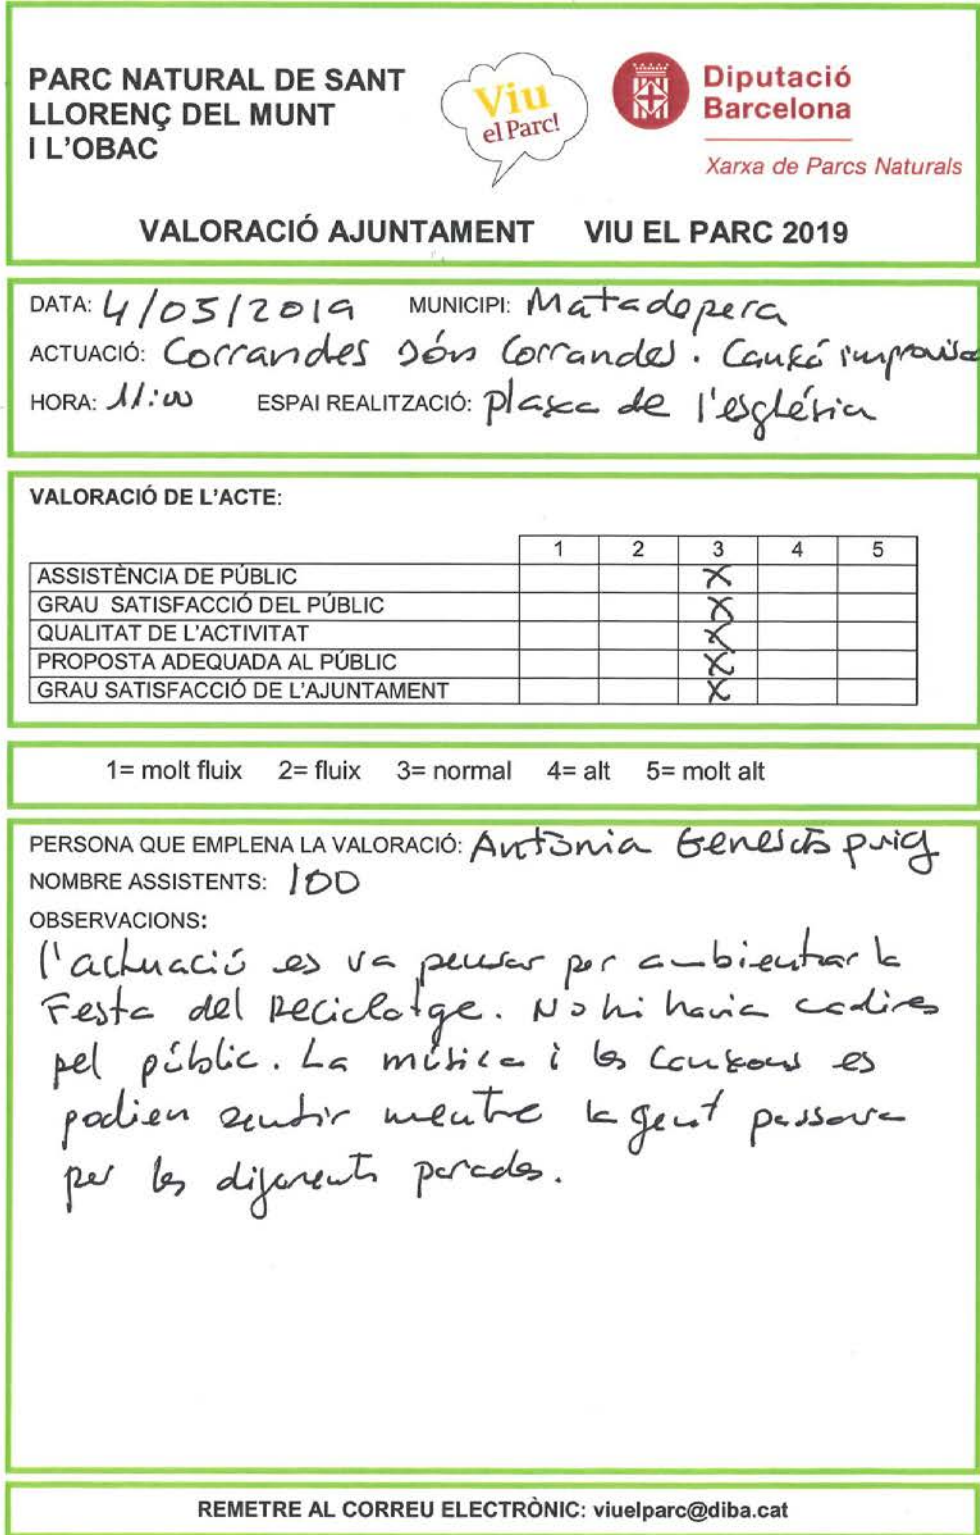 PARC NATURAL DE SANT
LLORENÇ DEL MUNT
I L'OBAC
Viu
el Parc!
Diputació
Barcelona
Xarxa de Parcs Naturals
VALORACIÓ AJUNTAMENT VIU EL PARC 2019
DATA: 4/05/2019 MUNICIPI: Matadepera
ACTUACIÓ: Corrandes són Corrandes. Cançó improvisa
HORA: 11:00 ESPAI REALITZACIÓ: plaça de l'església
VALORACIÓ DE L'ACTE:
1 2 3 4 5
ASSISTÈNCIA DE PÚBLIC X
GRAU SATISFACCIÓ DEL PÚBLIC X
QUALITAT DE L'ACTIVITAT X
PROPOSTA ADEQUADA AL PÚBLIC X
GRAU SATISFACCIÓ DE L'AJUNTAMENT X
1= molt fluix 2= fluix 3= normal 4= alt 5= molt alt
PERSONA QUE EMPLENA LA VALORACIÓ: Antònia puig
NOMBRE ASSISTENTS: 100
OBSERVACIONS:
l'actuació es va pensar per ambientar la
Festa del Reciclatge. No hi havia cadires
pel públic. La música i les cançons es
podien sentir mentre la gent passava
per les diferents parades.
REMETRE AL CORREU ELECTRÒNIC: viuelparc@diba.cat